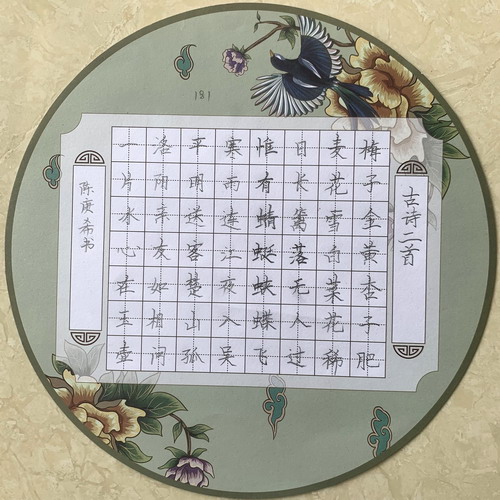 181
古诗二首
梅子金黄杏子肥
麦花雪白菜花稀
日长篱落无人过
惟有蜻蜓蛱蝶飞
寒雨连江夜入吴
平明送客楚山孤
洛阳亲友如相问
一片冰心在玉壶
陈庚希书